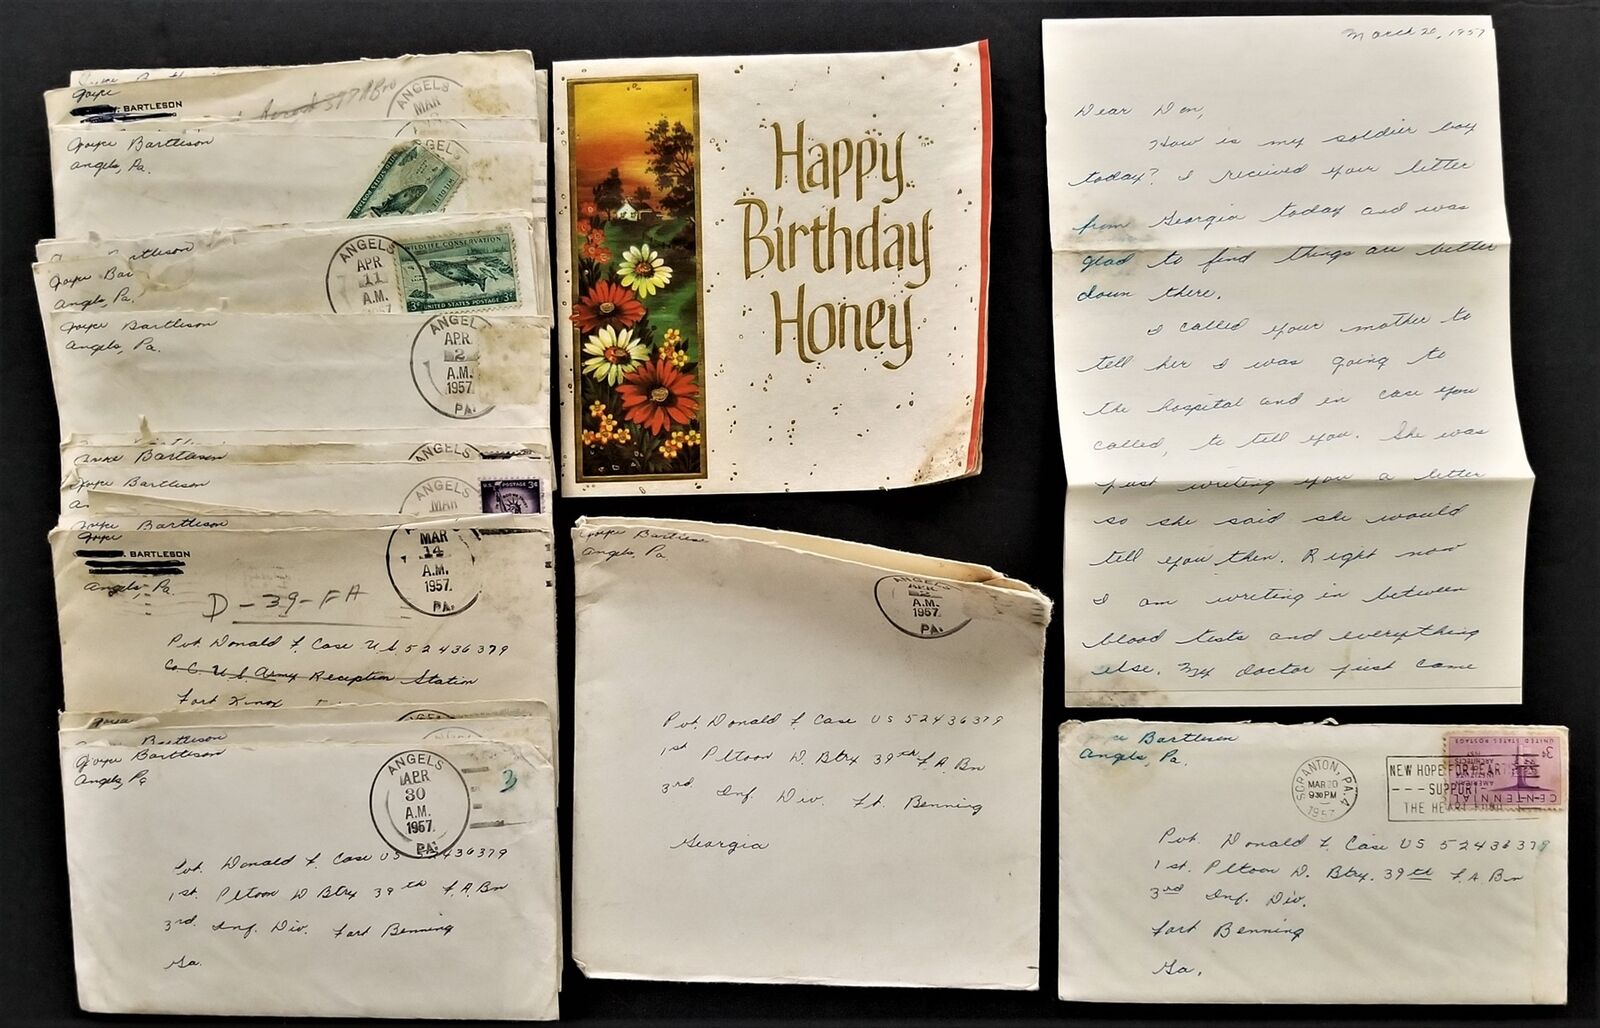 Joyce
BARTLESON
ANGELS
MAR
Joyce Bartleson
Angels, Pa.
GELS
WILDLIFE CONSERVATION
Bartleson
Joyce Bar
Angels, Pa.
ANGELS
APR
11
A.M.
1957
WILDLIFE CONSERVATION
3¢ UNITED STATES POSTAGE 3¢
Joyce Bartleson
Angels, Pa.
ANGELS
APR
2
A.M.
1957
PA.
Bartleson
ANGELS
Joyce Bartleson
ANGELS
MAR
U.S. POSTAGE 3¢
Joyce Bartleson
Joyce
BARTLESON
Angels, Pa.
MAR
14
A.M.
1957
PA.
D-39-FA
Pvt. Donald F. Case US 52436379
Co C. U.S Army Reception Station
Fort Knox
Bartleson
Joyce Bartleson
Angels, Pa
ANGELS
APR
30
A.M.
1957
PA.
3
Pvt. Donald F. Case US 52436379
1st. Pltoon D Btry 39th F.A. Bn
3rd. Inf. Div. Fort Benning
Ga.
Happy
Birthday
Honey
Joyce Bartleson
Angels, Pa.
ANGELS
APR
2
A.M.
1957
PA.
Pvt. Donald F. Case US 52436379
1st Pltoon D. Btry 39th F.A. Bn
3rd Inf. Div. Ft. Benning
Georgia
March 20, 1957
Dear Don,
How is my soldier boy
today? I recieved your letter
from Georgia today and was
glad to find things are better
down there.
I called your mother to
tell her I was going to
the hospital and in case you
called, to tell you. She was
just writing you a letter
so she said she would
tell you then. Right now
I am writing in between
blood tests and everything
else. My doctor just came
Bartleson
Angels, Pa.
SCRANTON, PA. 4
MAR 20
930 PM
1957
NEW HOPE FOR HEARTS
SUPPORT
THE HEART FUND
UNITED STATES POSTAGE
3¢
AMERICAN
INSTITUTE
ARCHITECTS
CENTENNIAL
Pvt. Donald F. Case US 52436379
1st. Pltoon D. Btry. 39th F.A. Bn
3rd Inf. Div.
Fort Benning
Ga.